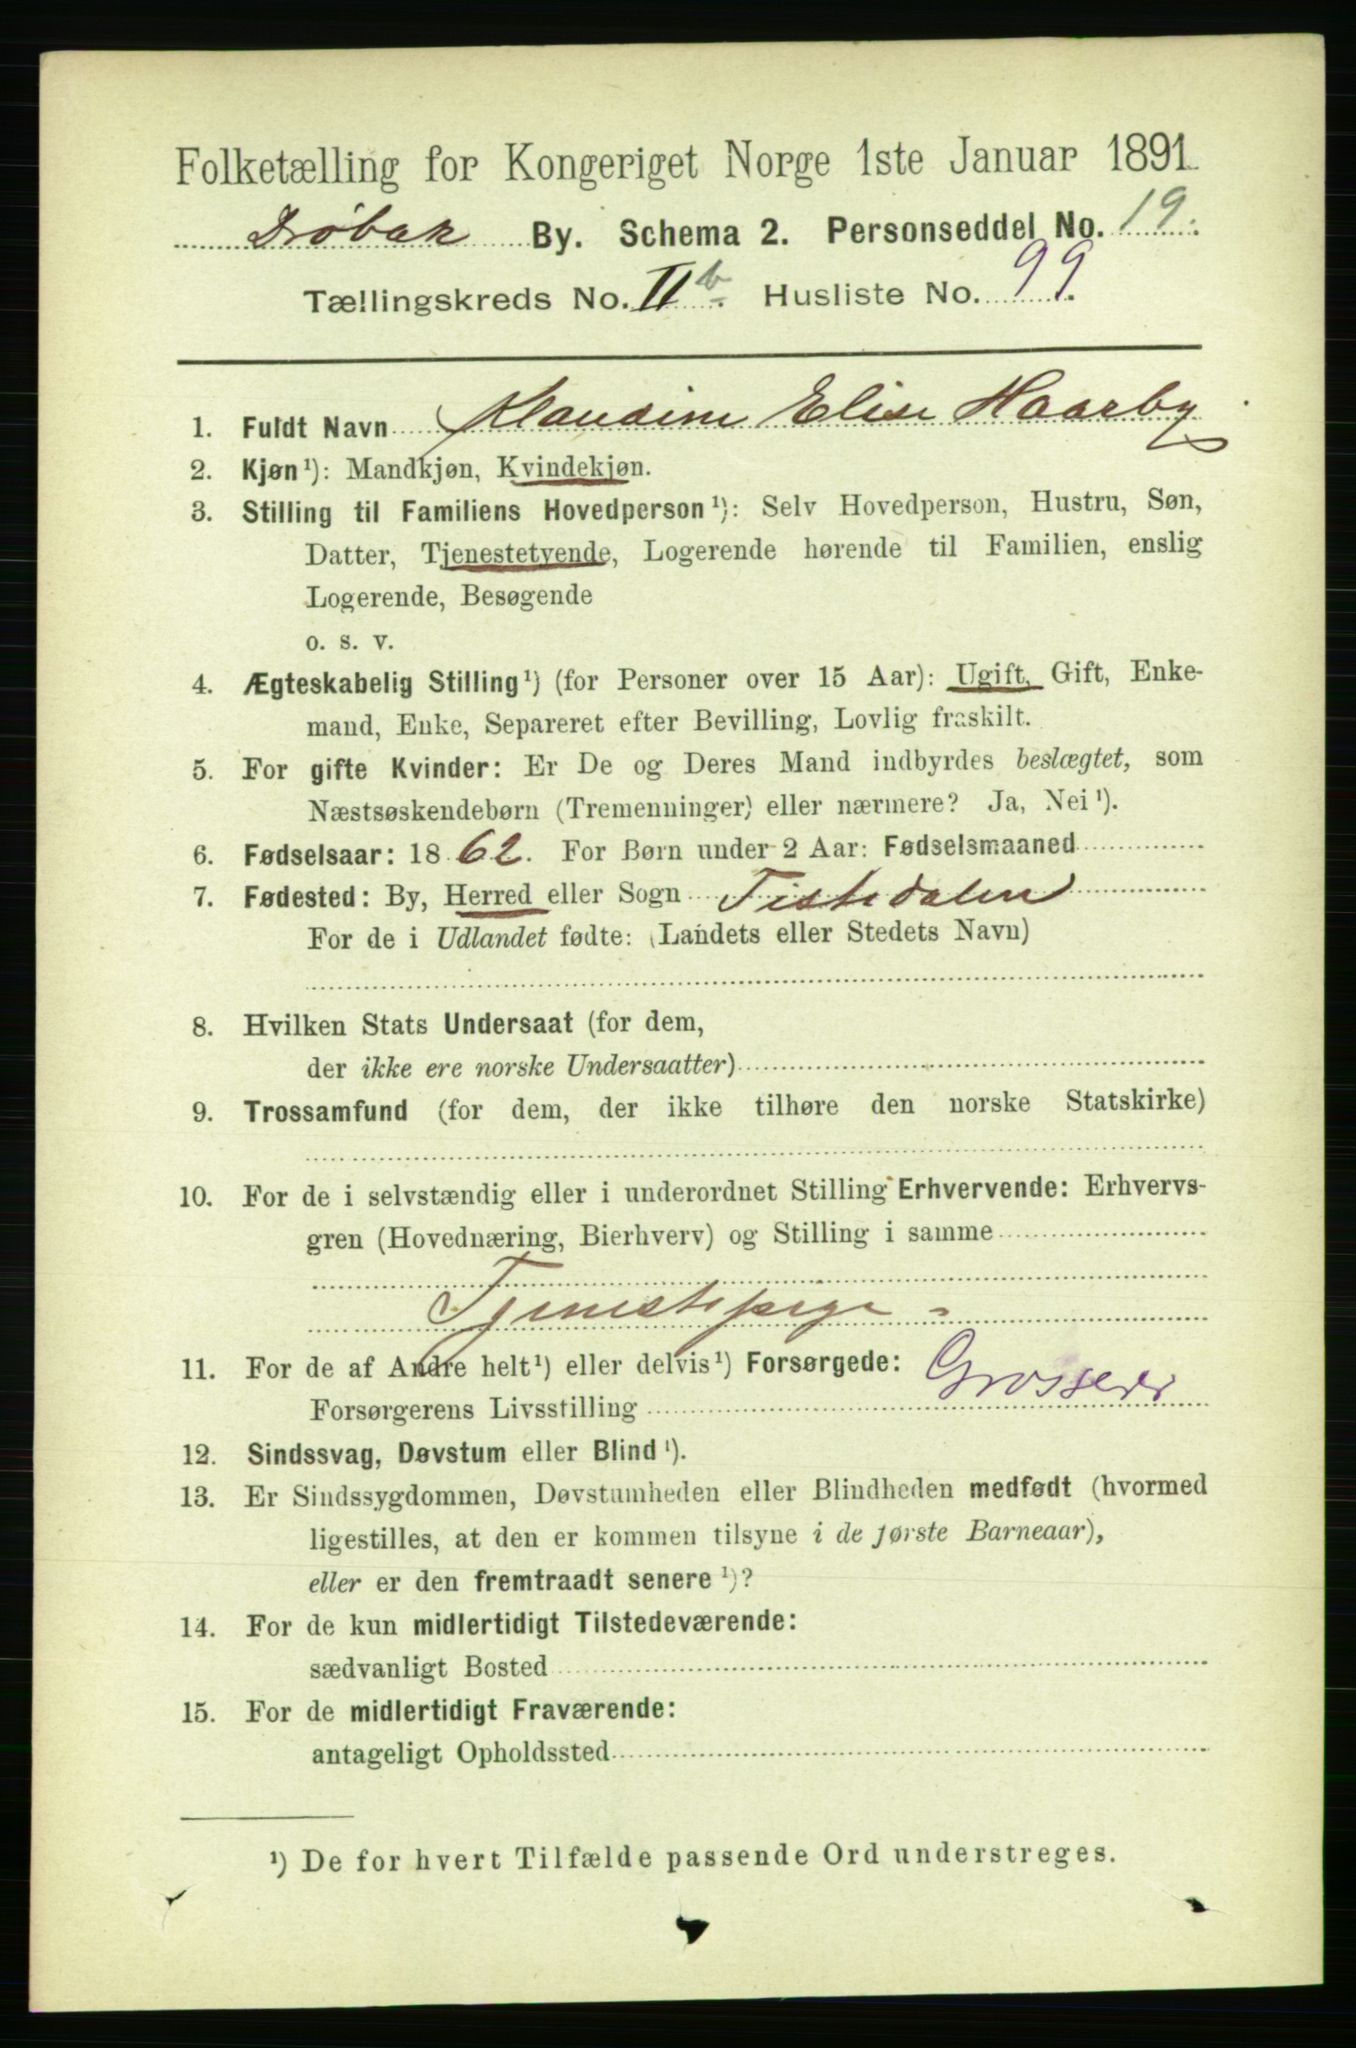 Folketælling for Kongeriget Norge 1ste Januar 1891.
Drøbak By. Schema 2. Personseddel No. 19.
Tællingskreds No. II b. Husliste No. 99.
1. Fuldt Navn Klaudine Elise Haarby
2. Kjøn ¹): Mandkjøn, Kvindekjøn.
3. Stilling til Familiens Hovedperson ¹): Selv Hovedperson, Hustru, Søn,
Datter, Tjenestetyende, Logerende hørende til Familien, enslig
Logerende, Besøgende
o. s. v.
4. Ægteskabelig Stilling ¹) (for Personer over 15 Aar): Ugift, Gift, Enke-
mand, Enke, Separeret efter Bevilling, Lovlig fraskilt.
5. For gifte Kvinder: Er De og Deres Mand indbyrdes beslægtet, som
Næstsøskendebørn (Tremenninger) eller nærmere? Ja, Nei ¹).
6. Fødselsaar: 1862. For Børn under 2 Aar: Fødselsmaaned
7. Fødested: By, Herred eller Sogn Tistedalen
For de i Udlandet fødte: (Landets eller Stedets Navn)
8. Hvilken Stats Undersaat (for dem,
der ikke ere norske Undersaatter)
9. Trossamfund (for dem, der ikke tilhøre den norske Statskirke)
10. For de i selvstændig eller i underordnet Stilling Erhvervende: Erhvervs-
gren (Hovednæring, Bierhverv) og Stilling i samme
Tjenestepige -
11. For de af Andre helt ¹) eller delvis ¹) Forsørgede: Grosserer
Forsørgerens Livsstilling
12. Sindssvag, Døvstum eller Blind ¹).
13. Er Sindssygdommen, Døvstumheden eller Blindheden medfødt (hvormed
ligestilles, at den er kommen tilsyne i de første Barneaar),
eller er den fremtraadt senere ¹)?
14. For de kun midlertidigt Tilstedeværende:
sædvanligt Bosted
15. For de midlertidigt Fraværende:
antageligt Opholdssted
¹) De for hvert Tilfælde passende Ord understreges.